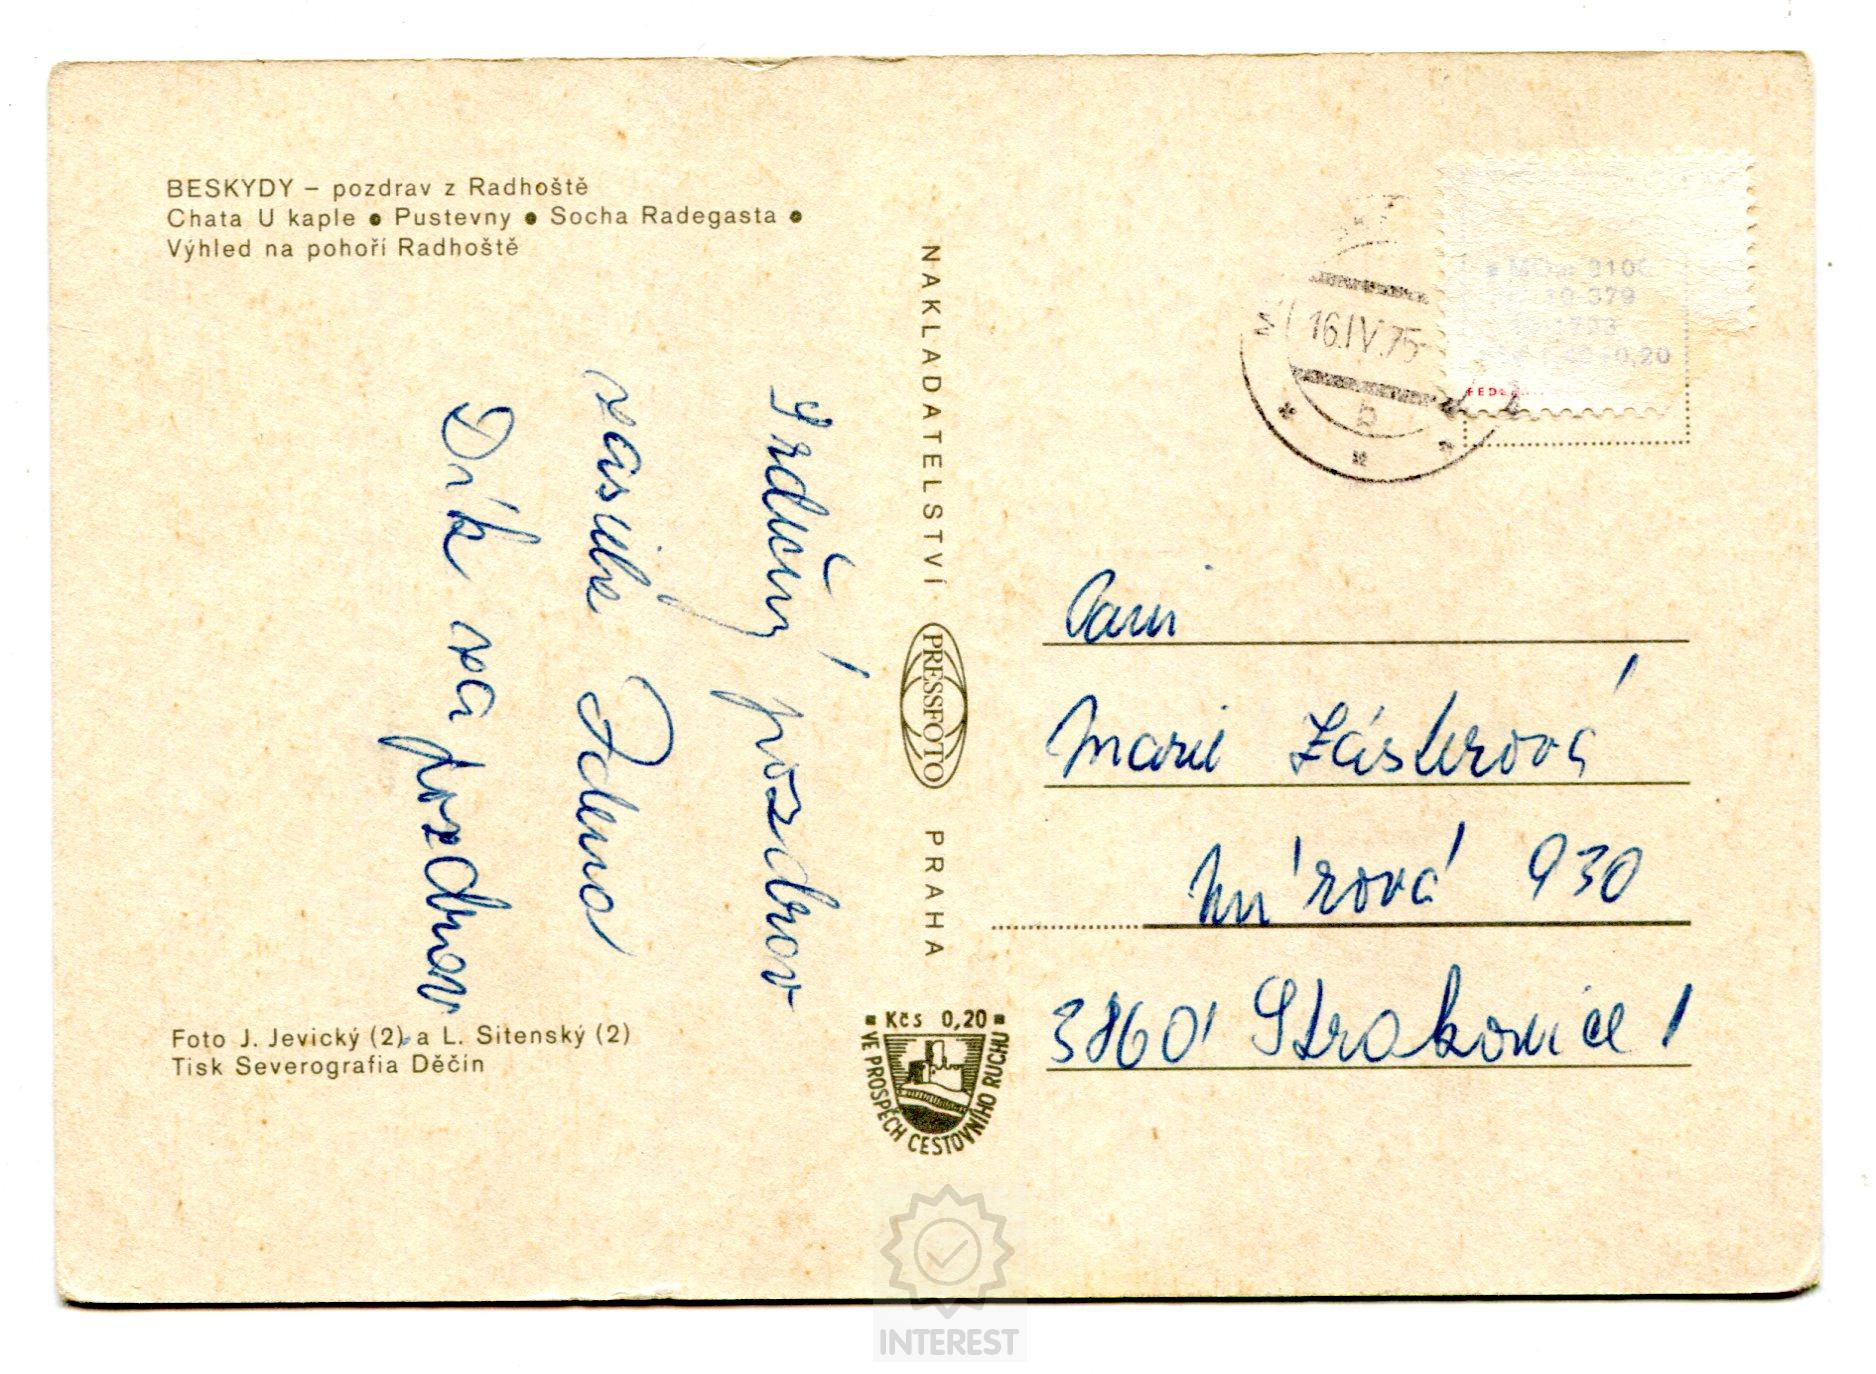 BESKYDY – pozdrav z Radhoště
Chata U kaple ● Pustevny ● Socha Radegasta ●
Výhled na pohoří Radhoště
Srdečný pozdrav
zasílá Zdena
Dík za pozdrav
Foto J. Jevický (2) a L. Sitenský (2)
Tisk Severografia Děčín
NAKLADATELSTVÍ PRESSFOTO PRAHA
Kčs 0,20
VE PROSPĚCH CESTOVNÍHO RUCHU
16.IV.75
b
0,20
Paní
Marie Zásterová
Mírová 930
38601 Strakonice 1
INTEREST